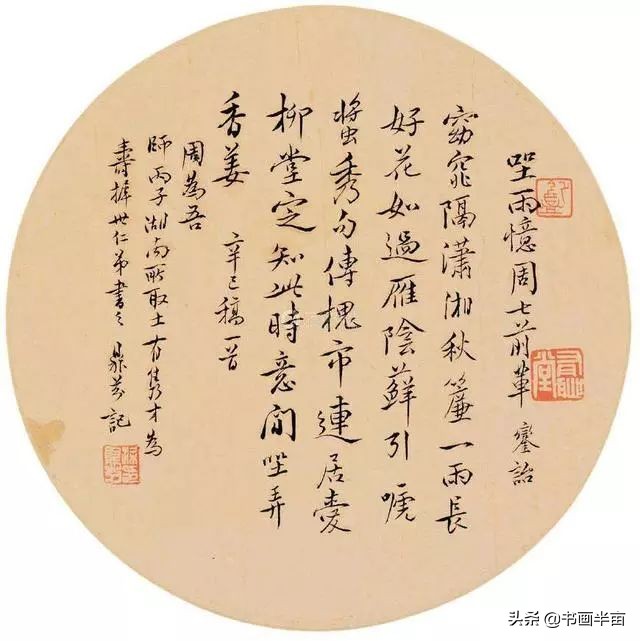 坐雨憶周七前輩 鑾詒
窈窕隔瀟湘秋簾一雨長
好花如過雁陰蘚引嗁
螿秀句傳槐市連居愛
柳堂定知此時意閒坐弄
香姜 辛巳稿一首
周為吾
師丙子湖南所取士有雋才為
世仁弟書之 鼎芬記
头条 @书画半亩